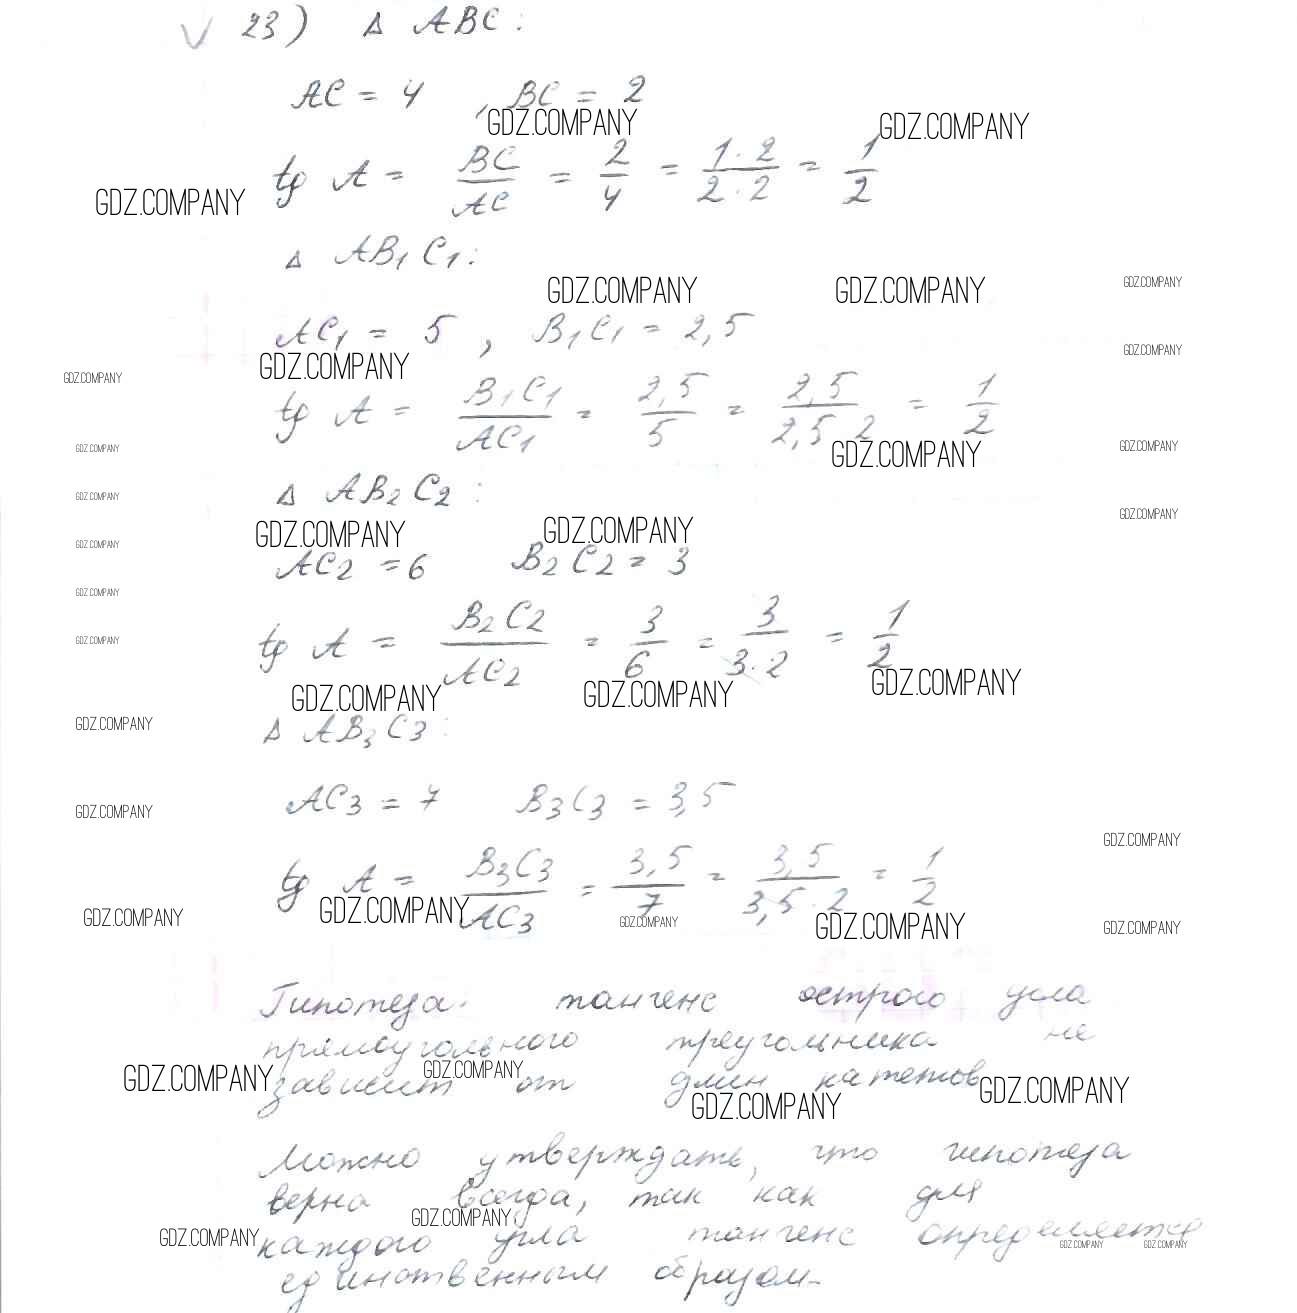 √ 23) Δ ABC:
AC = 4 , BC = 2
GDZ.COMPANY GDZ.COMPANY
tg A = BC/AC = 2/4 = 1·2/2·2 = 1/2
GDZ.COMPANY
Δ AB₁C₁:
GDZ.COMPANY GDZ.COMPANY GDZ.COMPANY
AC₁ = 5 , B₁C₁ = 2,5
GDZ.COMPANY
GDZ.COMPANY GDZ.COMPANY
tg A = B₁C₁/AC₁ = 2,5/5 = 2,5/2,5·2 = 1/2
GDZ.COMPANY GDZ.COMPANY GDZ.COMPANY
Δ AB₂C₂:
GDZ.COMPANY GDZ.COMPANY
GDZ.COMPANY GDZ.COMPANY
GDZ.COMPANY
AC₂ = 6 B₂C₂ = 3
GDZ.COMPANY
tg A = B₂C₂/AC₂ = 3/6 = 3/3·2 = 1/2
GDZ.COMPANY
GDZ.COMPANY GDZ.COMPANY GDZ.COMPANY
Δ AB₃C₃:
GDZ.COMPANY
AC₃ = 7 B₃C₃ = 3,5
GDZ.COMPANY
GDZ.COMPANY
tg A = B₃C₃/AC₃ = 3,5/7 = 3,5/3,5·2 = 1/2
GDZ.COMPANY GDZ.COMPANY GDZ.COMPANY GDZ.COMPANY GDZ.COMPANY
Гипотеза: тангенс острого угла
прямоугольного треугольника не
зависит от длин катетов
GDZ.COMPANY GDZ.COMPANY GDZ.COMPANY GDZ.COMPANY
Можно утверждать, что гипотеза
верна всегда, так как для
GDZ.COMPANY
каждого угла тангенс определяется
GDZ.COMPANY GDZ.COMPANY GDZ.COMPANY
единственным образом.